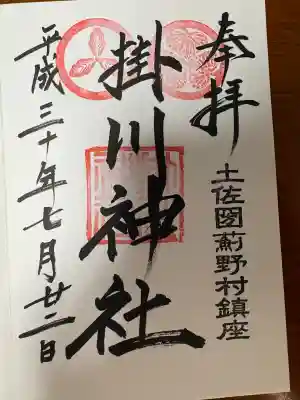 奉拝
土佐國薊野村鎮座
掛川神社
平成三十年七月廿二日